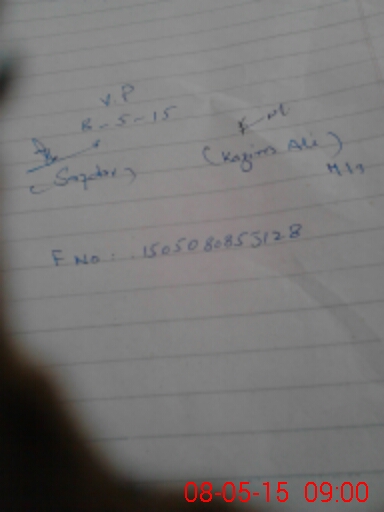 V.P
8-5-15
(Kazim Ali)
F No: 150508085S128
08-05-15 09:00